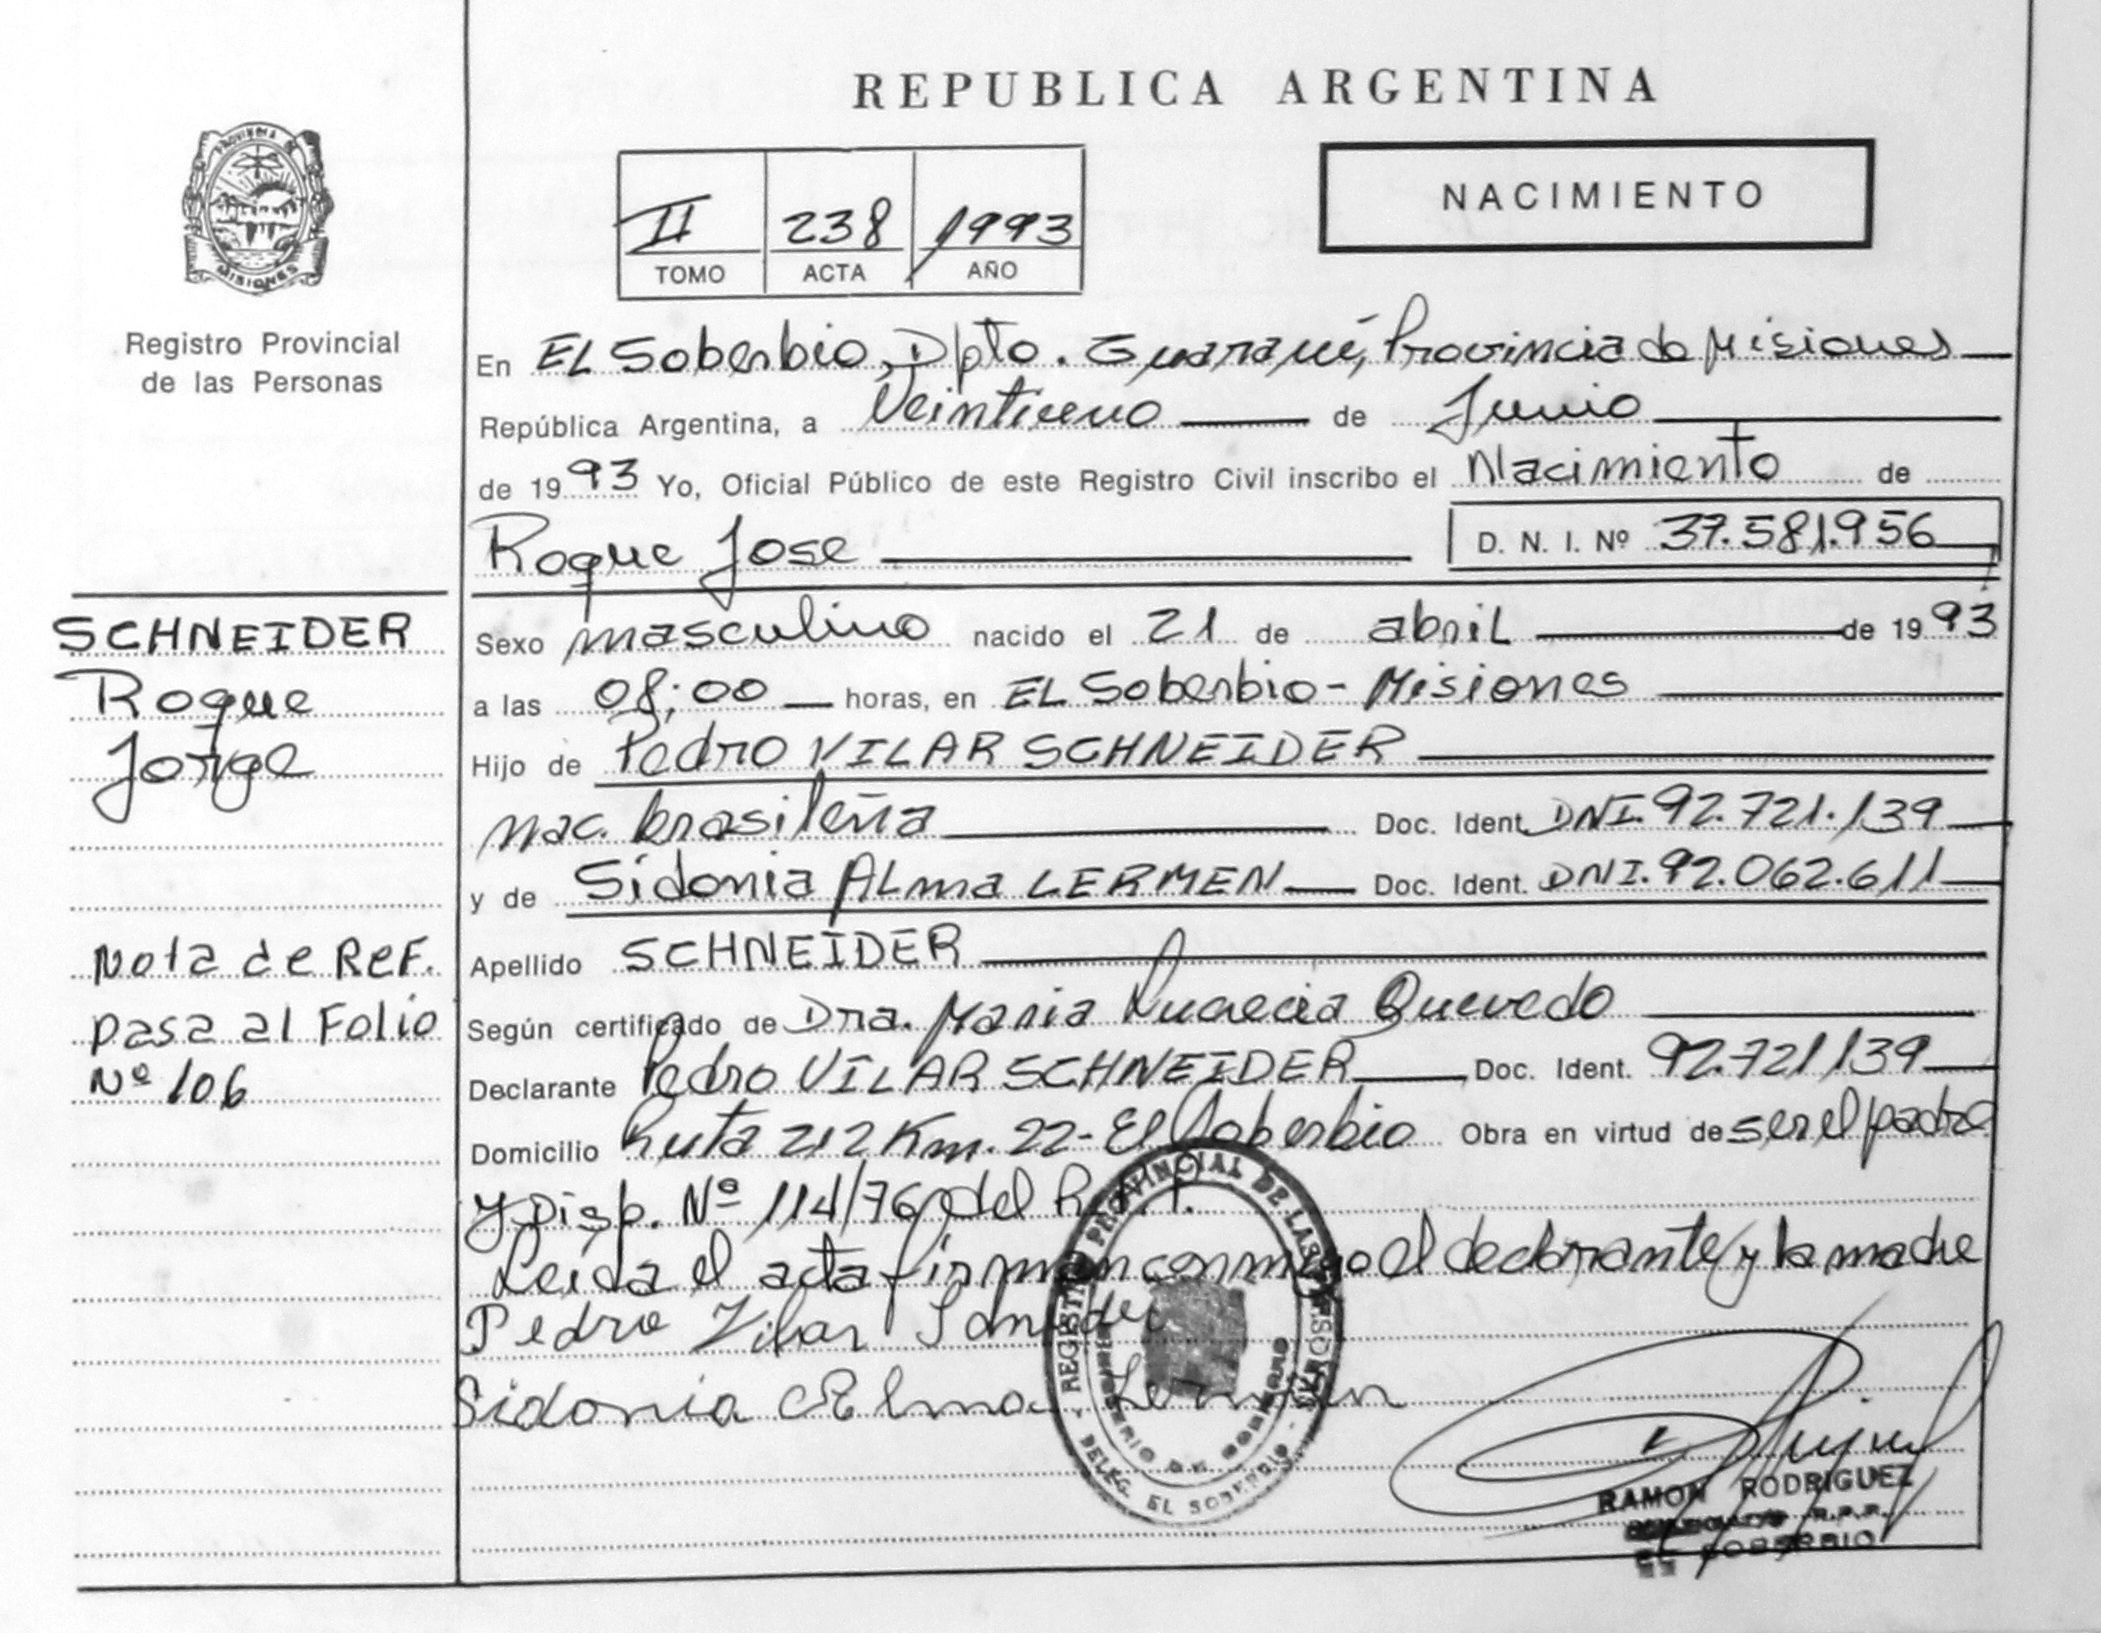 REPUBLICA ARGENTINA
PROVINCIA DE
MISIONES
Registro Provincial
de las Personas
II 238 1993
TOMO ACTA AÑO
NACIMIENTO
En EL Soberbio, Dpto. Guaraní, Provincia de Misiones
República Argentina, a Veintiuno de Junio
de 1993 Yo, Oficial Público de este Registro Civil inscribo el Nacimiento de
Roque Jose D. N. I. Nº 37.581.956
SCHNEIDER
Roque
Jorge
Nota de Ref.
pasa al Folio
Nº 106
Sexo masculino nacido el 21 de abril de 1993
a las 08;00 horas, en EL Soberbio - Misiones
Hijo de Pedro VILAR SCHNEIDER
nac. brasileña Doc. Ident. DNI. 92.721.139
y de Sidonia ALma LERMEN Doc. Ident. DNI. 92.062.611
Apellido SCHNEIDER
Según certificado de Dra. Maria Lucrecia Quevedo
Declarante Pedro VILAR SCHNEIDER Doc. Ident. 92.721139
Domicilio Ruta 212 Km. 22- El Soberbio Obra en virtud de ser el padre
y Disp. Nº 114/76 del
Leída el acta firman conmigo el declarante y la madre
Pedro Vilar
Sidonia Alma Lermen
REGISTRO PROVINCIAL DE LAS PERSONAS
MINISTERIO DE GOBIERNO
- DELEG. EL SOBERBIO -
RAMON RODRIGUEZ
R.P.P.
EL SOBERBIO